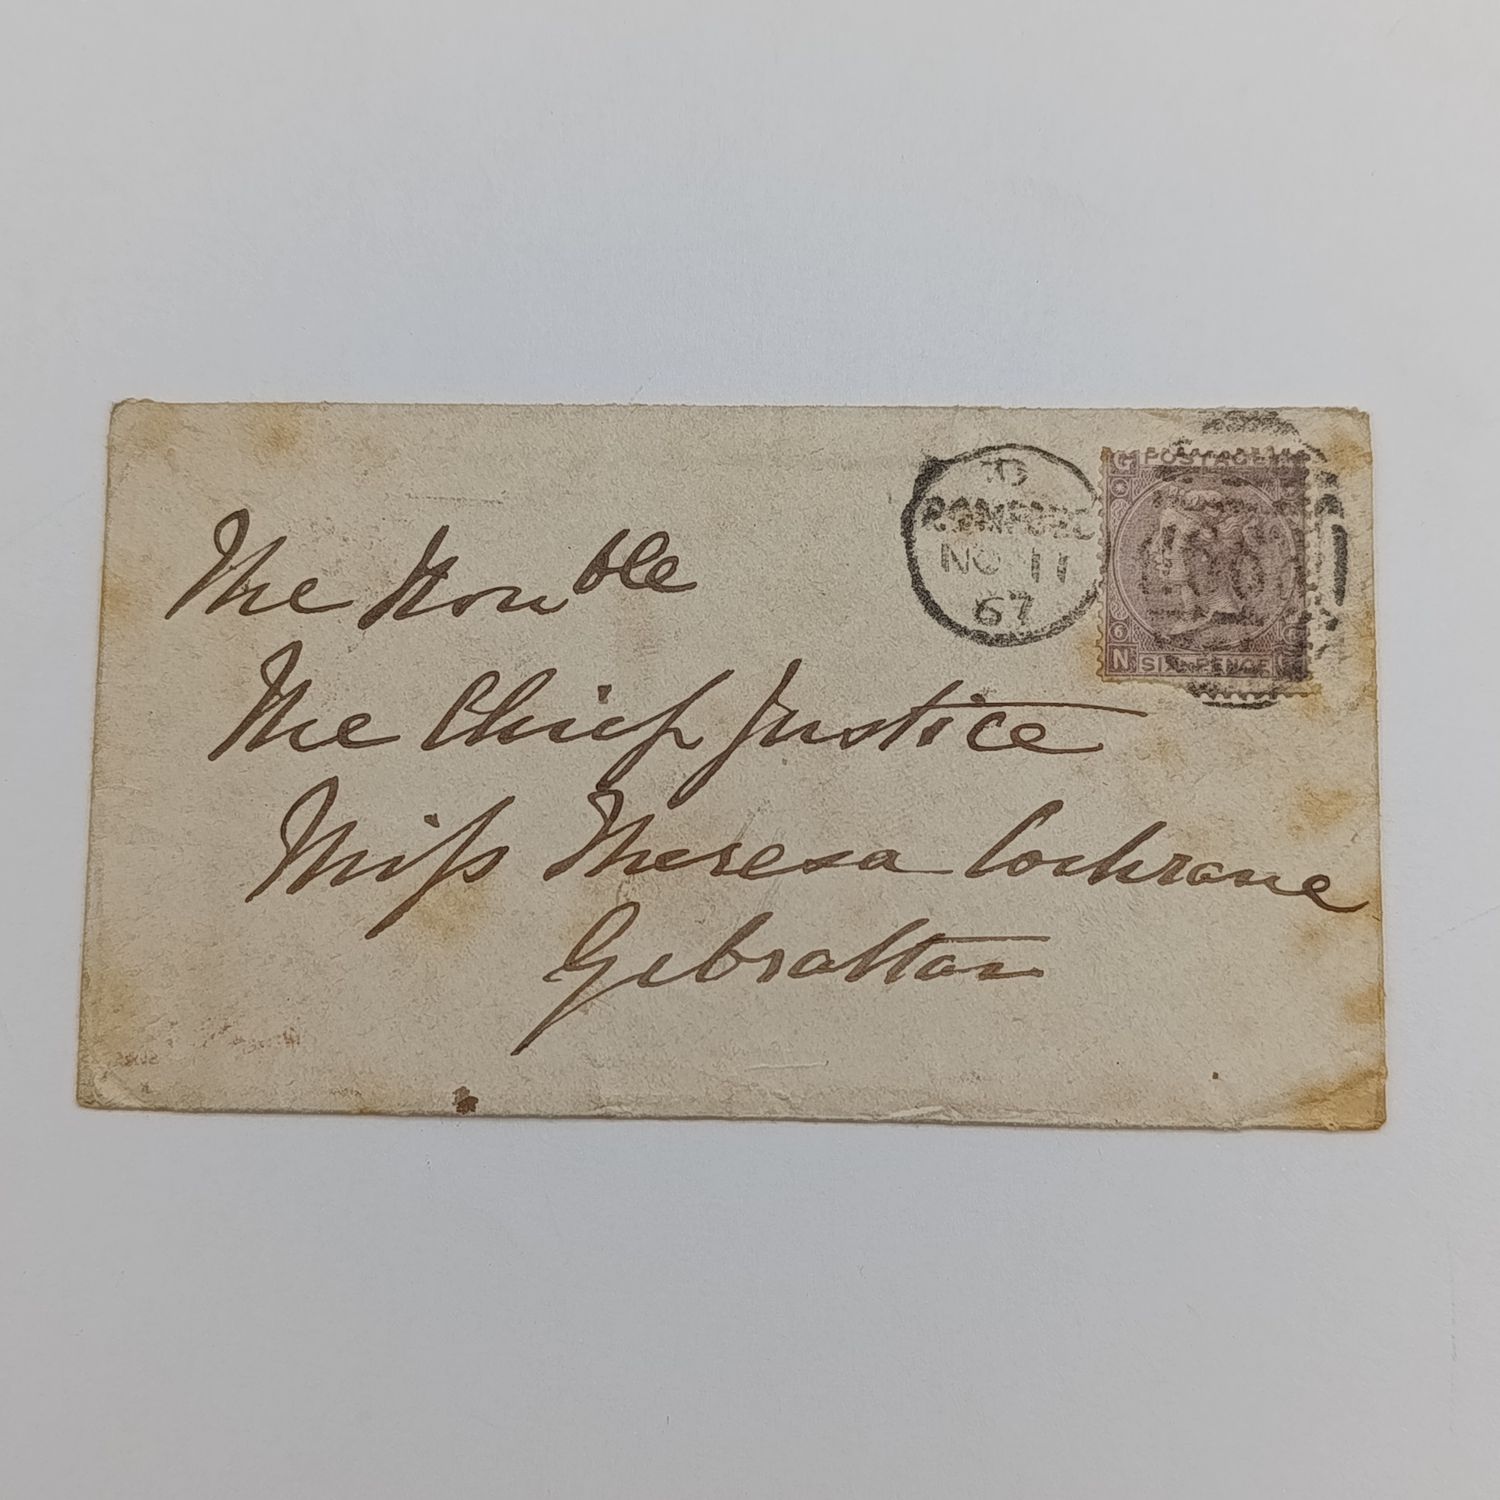 The Honble
The Chief Justice
Miss Theresa Cochrane
Gibraltar
ROMFORD
NO 11
67
G POSTAGE
6
N SIX PENCE